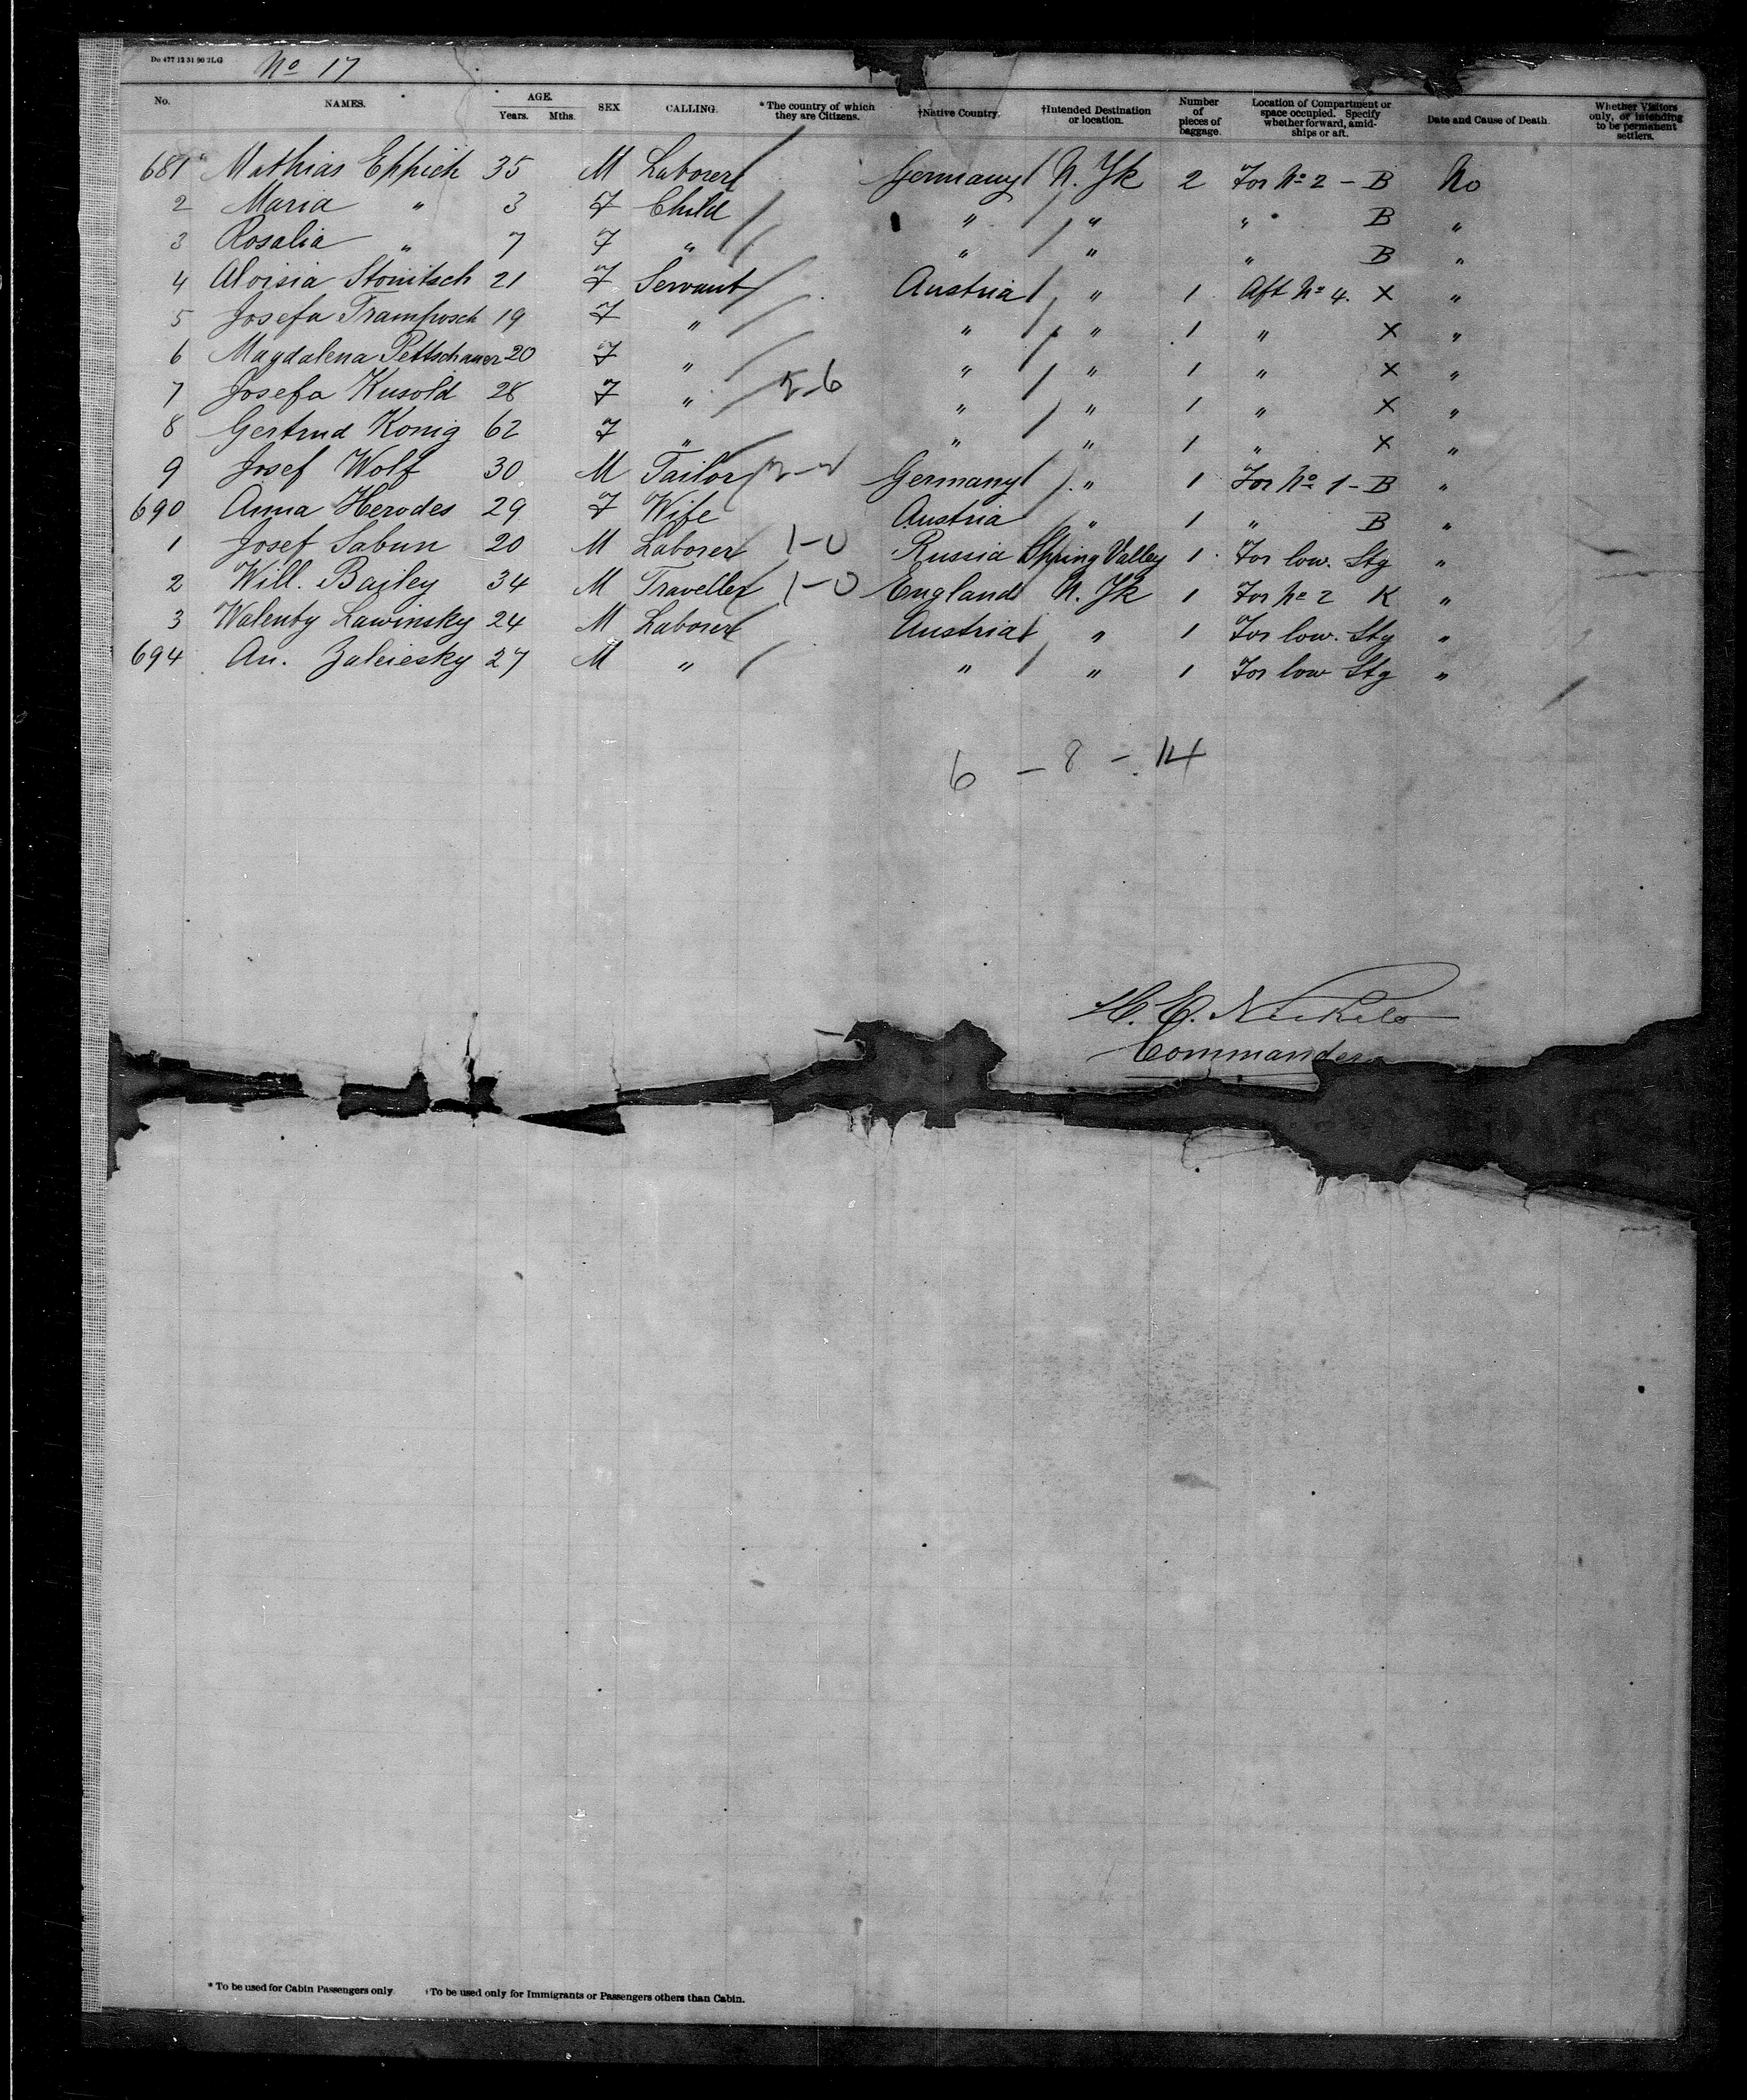 Do 477 12 31 90 2LG
No 17
No. NAMES. AGE. Years. Mths. SEX CALLING. * The country of which they are Citizens. †Native Country. †Intended Destination or location. Number of pieces of baggage. Location of Compartment or space occupied. Specify whether forward, amidships or aft. Date and Cause of Death. Whether Visitors only, or intending to be permanent settlers.
681 Mathias Eppich 35 M Laborer Germany N. Yk 2 For No 2 - B No
2 Maria " 3 F Child " " " B "
3 Rosalia " 7 F " " " " B "
4 Aloisia Stonitsch 21 F Servant Austria " 1 Aft No 4. X "
5 Josefa Tramposch 19 F " " " 1 " X "
6 Magdalena Pettschauer 20 F " " " 1 " X "
7 Josefa Kusold 28 F " 5-6 " " 1 " X "
8 Gertrud Konig 62 F " " " 1 " X "
9 Josef Wolf 30 M Tailor Germany " 1 For No 1 - B "
690 Anna Herodes 29 F Wife Austria " 1 " B "
1 Josef Sabun 20 M Laborer 1-0 Russia Spring Valley 1 For low. Stg "
2 Will. Bailey 34 M Traveller 1-0 England N. Yk 1 For No 2 K "
3 Walenty Lawinsky 24 M Laborer Austria " 1 For low. Stg "
694 An. Zaleiesky 27 M " " " 1 For low Stg "
6 - 8 - 14
H. E. Nickels
Commander
* To be used for Cabin Passengers only. †To be used only for Immigrants or Passengers others than Cabin.